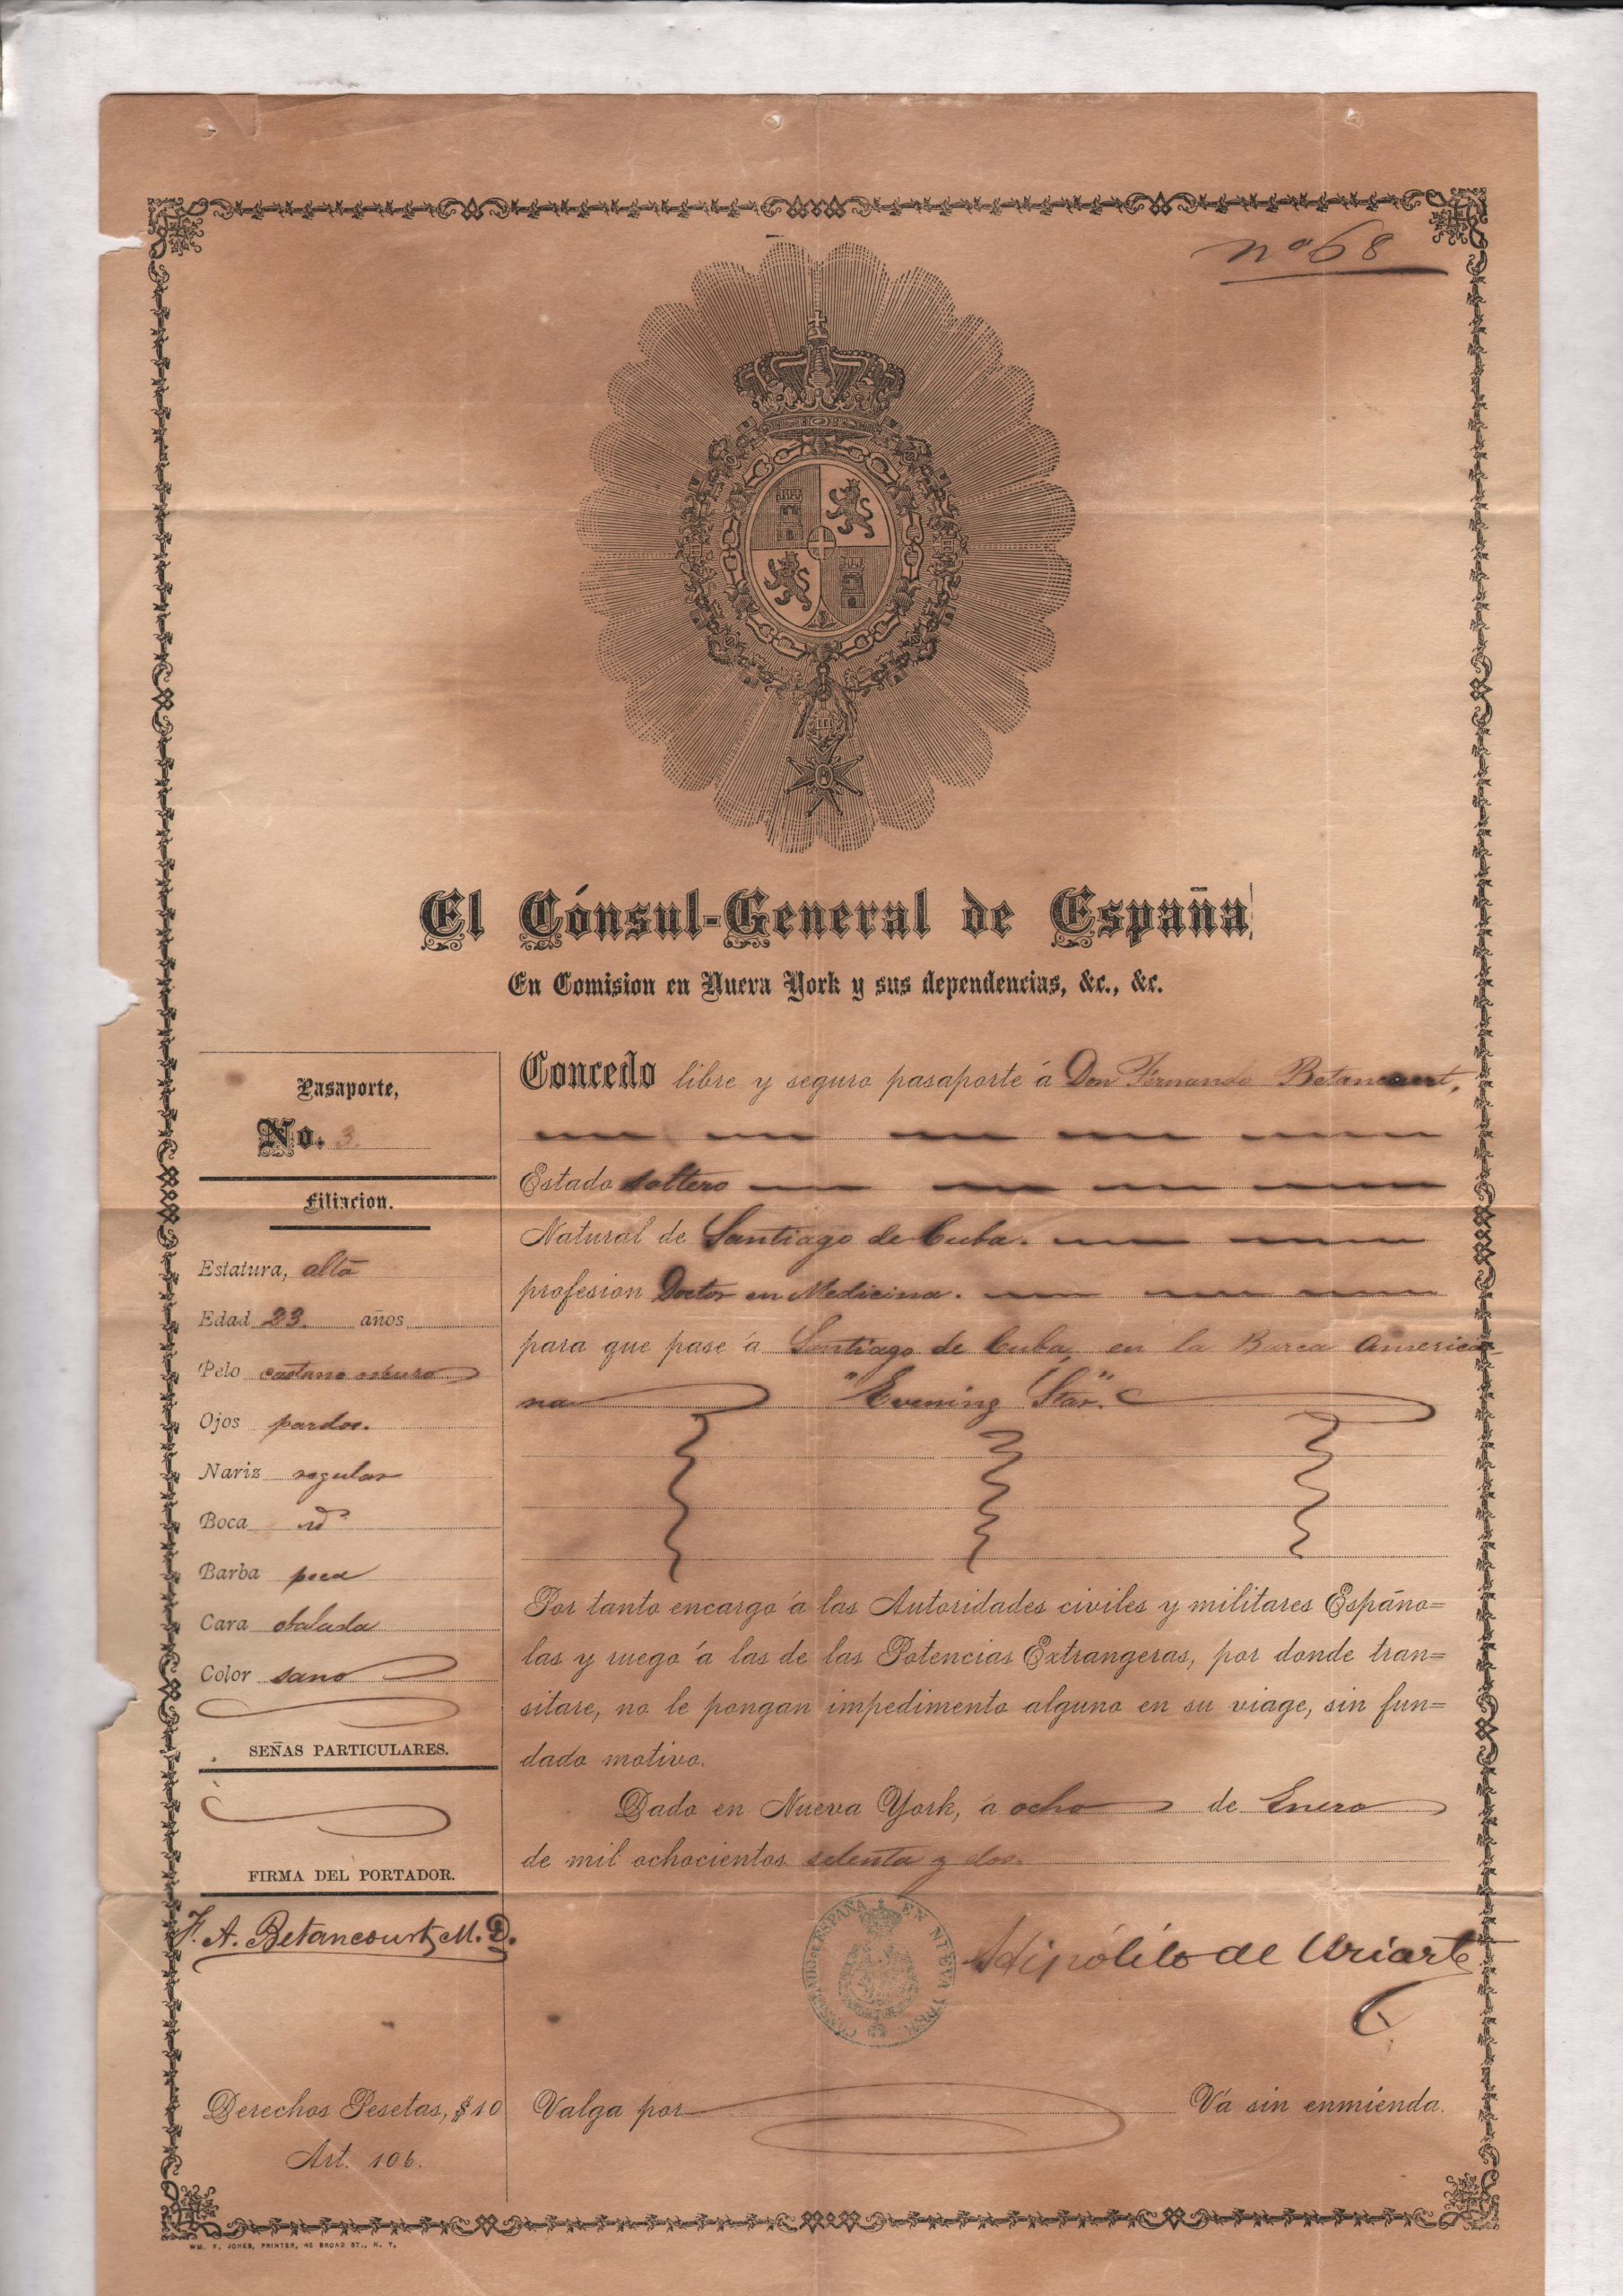 nº 68
El Cónsul-General de España,
En Comision en Nueva York y sus dependencias, &c., &c.
Pasaporte,
No. 3
Filiacion.
Estatura, alta
Edad 23. años
Pelo castano oscuro
Ojos pardos.
Nariz regular
Boca id
Barba poca
Cara obalada
Color sano
SEÑAS PARTICULARES.
FIRMA DEL PORTADOR.
F. A. Betancourt, M. D.
Derechos Pesetas, $10
Art. 106.
Concedo libre y seguro pasaporte á Don Fernando Betancourt,
Estado soltero
Natural de Santiago de Cuba.
profesion Doctor en Medicina.
para que pase á Santiago de Cuba, en la Barca America-
na "Evening Star".
Por tanto encargo á las Autoridades civiles y militares Españo=
las y ruego á las de las Potencias Extrangeras, por donde tran=
sitare, no le pongan impedimento alguno en su viage, sin fun=
dado motivo.
Dado en Nueva York, á ocho de Enero
de mil ochocientos setenta y dos.
CONSULADO DE ESPAÑA EN NUEVA YORK
Hipólito de Uriarte
Valga por Vá sin enmienda.
WM. F. JONES, PRINTER, 45 BROAD ST., N. Y.